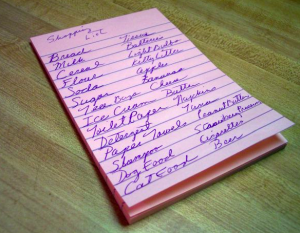 Shopping
List
Bread
Milk Batteries
Cereal Light Bulbs
Flour Kitty Litter
Soda Apples
Sugar Bananas
Tea
Ice Cream Butter
Toilet Paper Napkins
Detergent Tuna
Paper Towels Peanut Butter
Shampoo Strawberry
Dog Food Cigarettes
Cat Food Beer